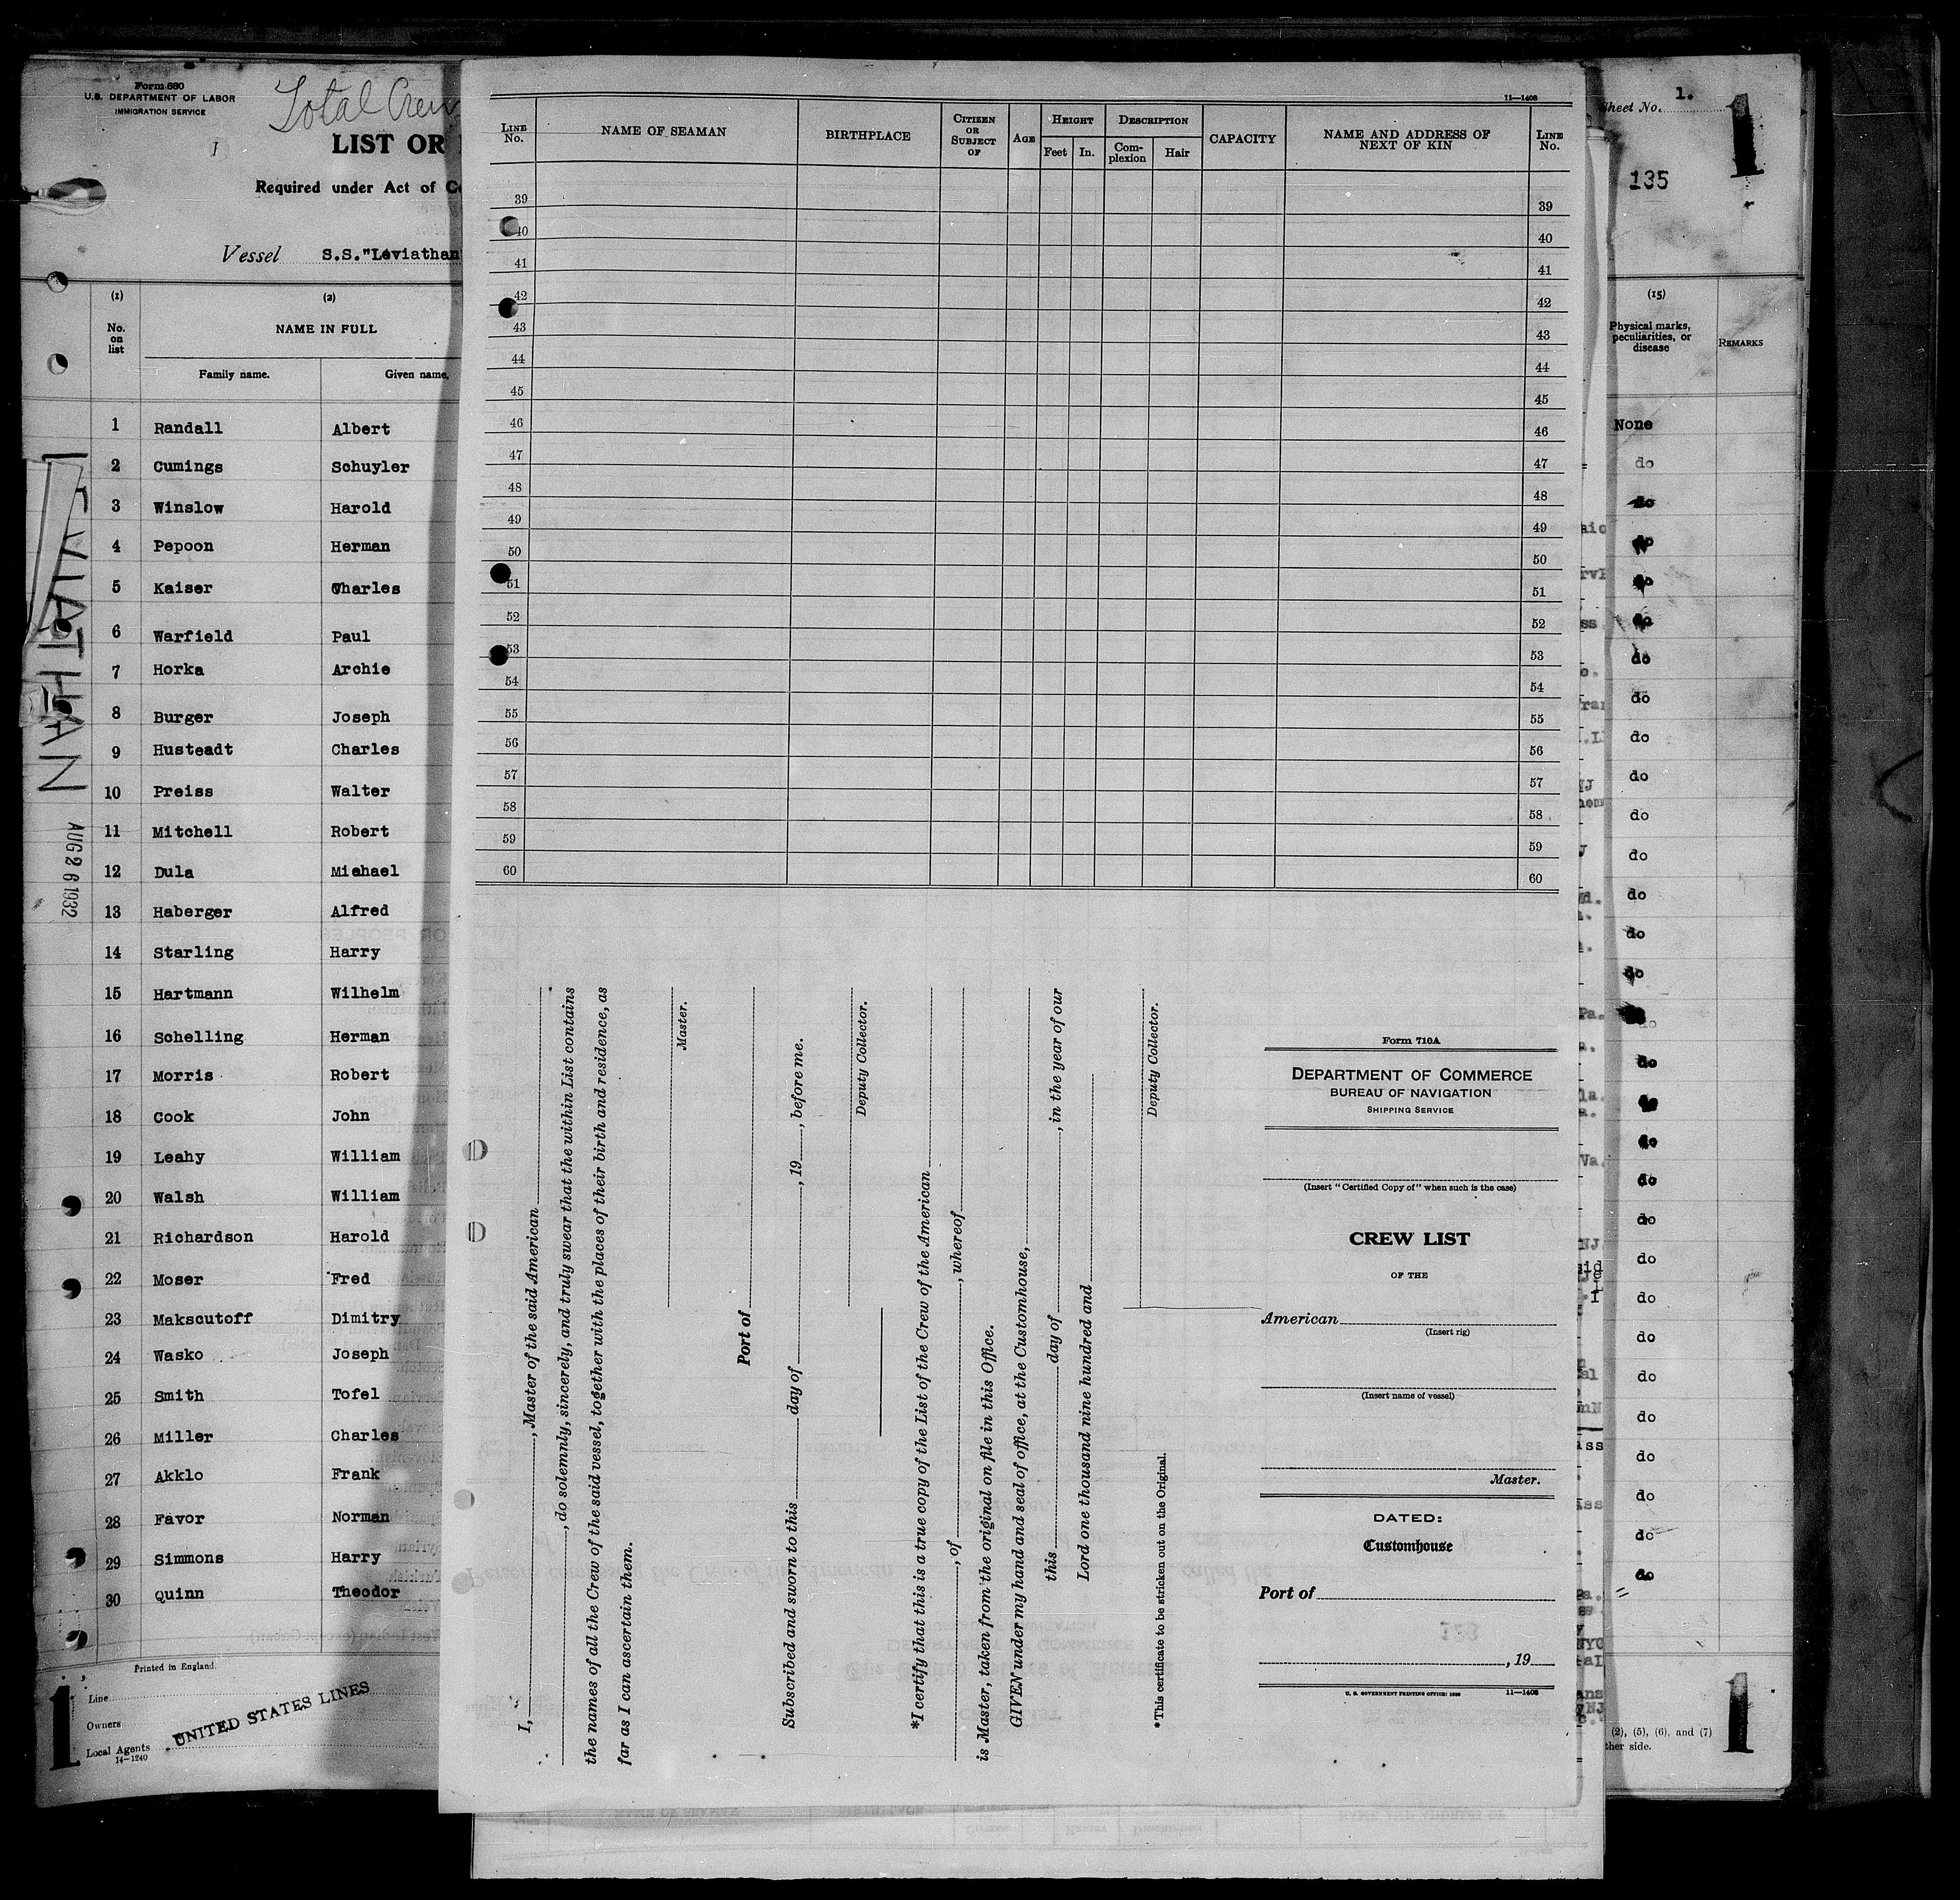 Form 680
U.S. DEPARTMENT OF LABOR
IMMIGRATION SERVICE
Total Crew
I
LIST OR
Required under Act of
Vessel S.S."Leviathan
(1) (2)
No. on list
NAME IN FULL
Family name. Given name.
1 Randall Albert
2 Cumings Schuyler
3 Winslow Harold
4 Pepoon Herman
5 Kaiser Charles
6 Warfield Paul
7 Horka Archie
8 Burger Joseph
9 Husteadt Charles
10 Preiss Walter
11 Mitchell Robert
12 Dula Miahael
13 Haberger Alfred
14 Starling Harry
15 Hartmann Wilhelm
16 Schelling Herman
17 Morris Robert
18 Cook John
19 Leahy William
20 Walsh William
21 Richardson Harold
22 Moser Fred
23 Makscutoff Dimitry
24 Wasko Joseph
25 Smith Tofel
26 Miller Charles
27 Akklo Frank
28 Favor Norman
29 Simmons Harry
30 Quinn Theodor
Printed in England.
Line
Owners
Local Agents
14-1240
UNITED STATES LINES
1
LEVIATHAN
AUG 26 1932
11—1408
LINE No.
NAME OF SEAMAN
BIRTHPLACE
CITIZEN OR SUBJECT OF
AGE
HEIGHT
Feet In.
DESCRIPTION
Com-plexion Hair
CAPACITY
NAME AND ADDRESS OF NEXT OF KIN
LINE No.
39 39
40 40
41 41
42 42
43 43
44 44
45 45
46 46
47 47
48 48
49 49
50 50
51 51
52 52
53 53
54 54
55 55
56 56
57 57
58 58
59 59
60 60
I, , Master of the said American
, do solemnly, sincerely, and truly swear that the within List contains
the names of all the Crew of the said vessel, together with the places of their birth and residence, as
far as I can ascertain them.
Master.
Port of
Subscribed and sworn to this day of , 19 , before me.
Deputy Collector.
*I certify that this is a true copy of the List of the Crew of the American
, of , whereof
is Master, taken from the original on file in this Office.
GIVEN under my hand and seal of office, at the Customhouse,
this day of , in the year of our
Lord one thousand nine hundred and
Deputy Collector.
*This certificate to be stricken out on the Original.
Form 710A
DEPARTMENT OF COMMERCE
BUREAU OF NAVIGATION
SHIPPING SERVICE
(Insert "Certified Copy of" when such is the case)
CREW LIST
OF THE
American
(Insert rig)
(Insert name of vessel)
Master.
DATED:
Customhouse
Port of
, 19
U. S. GOVERNMENT PRINTING OFFICE: 1930 11—1408
Sheet No. 1.
1
135
(15)
Physical marks, peculiarities, or disease
REMARKS
None
do
do
do
do
do
do
do
do
do
do
do
do
do
do
do
do
do
do
do
do
do
do
do
do
do
do
do
do
do
(2), (5), (6), and (7)
ther side.
1